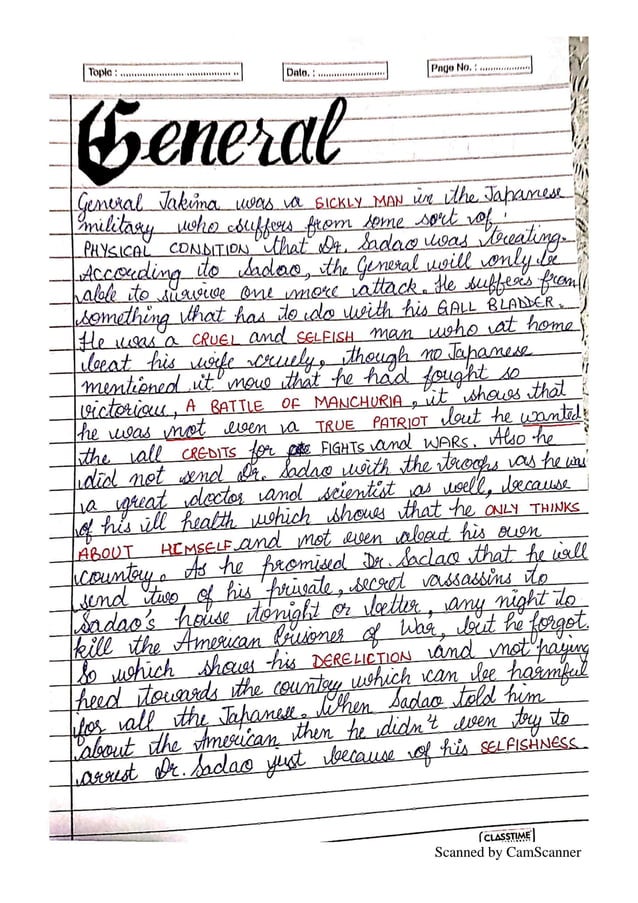 Topic : ........................................
Date. : ........................
Page No. : ..................
General
General Takima was a SICKLY MAN in the Japanese
military who suffers from some sort of
PHYSICAL CONDITION that Dr. Sadao was treating.
According to Sadao, the General will only be
able to survive one more attack. He suffers from
something that has to do with his GALL BLADDER.
He was a CRUEL and SELFISH man who at home
beat his wife cruely, though no Japanese
mentioned it now that he had fought so
victorious, A BATTLE OF MANCHURIA, it shows that
he was not even a TRUE PATRIOT but he wanted
the all CREDITS for FIGHTS and WARS. Also he
did not send Dr. Sadao with the troops as he was
a great doctor and scientist as well, because
of his ill health which shows that he ONLY THINKS
ABOUT HIMSELF and not even about his own
country. As he promised Dr. Sadao that he will
send two of his private, secret assassins to
Sadao's house tonight or better, any night to
kill the American Prisoner of War, but he forgot.
So which shows his DERELICTION and not paying
heed towards the country which can be harmful
for all the Japanese. When Sadao told him
about the American then he didn't even try to
arrest Dr. Sadao just because of his SELFISHNESS.
CLASSTIME
Scanned by CamScanner